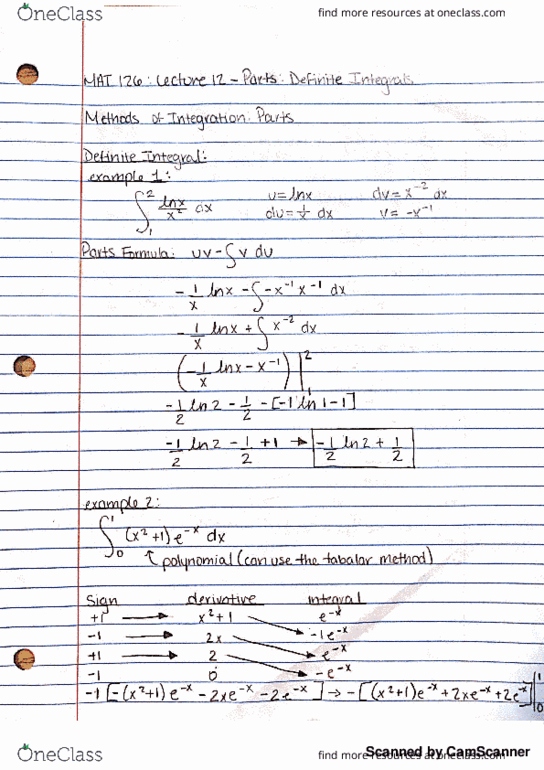 OneClass find more resources at oneclass.com
MAT 126: Lecture 12 - Parts: Definite Integrals
Methods of Integration: Parts
Definite Integral:
example 1:
∫₁² lnx/x² dx u = lnx dv = x⁻² dx
du = 1/x dx v = -x⁻¹
Parts Formula: uv - ∫ v du
-1/x lnx - ∫ -x⁻¹ x⁻¹ dx
-1/x lnx + ∫ x⁻² dx
(-1/x lnx - x⁻¹) |₁²
-1/2 ln2 - 1/2 - [-1 ln1 - 1]
-1/2 ln2 - 1/2 + 1 → -1/2 ln2 + 1/2
example 2:
∫₀¹ (x²+1) e⁻ˣ dx
↑ polynomial (can use the tabular method)
Sign derivative integral
+1 → x²+1 e⁻ˣ
-1 → 2x -1e⁻ˣ
+1 → 2 e⁻ˣ
-1 0 -e⁻ˣ
-1 [-(x²+1) e⁻ˣ - 2xe⁻ˣ - 2e⁻ˣ] → -[(x²+1)e⁻ˣ + 2xe⁻ˣ + 2e⁻ˣ] |₀¹
OneClass find more resources at oneclass.com
Scanned by CamScanner